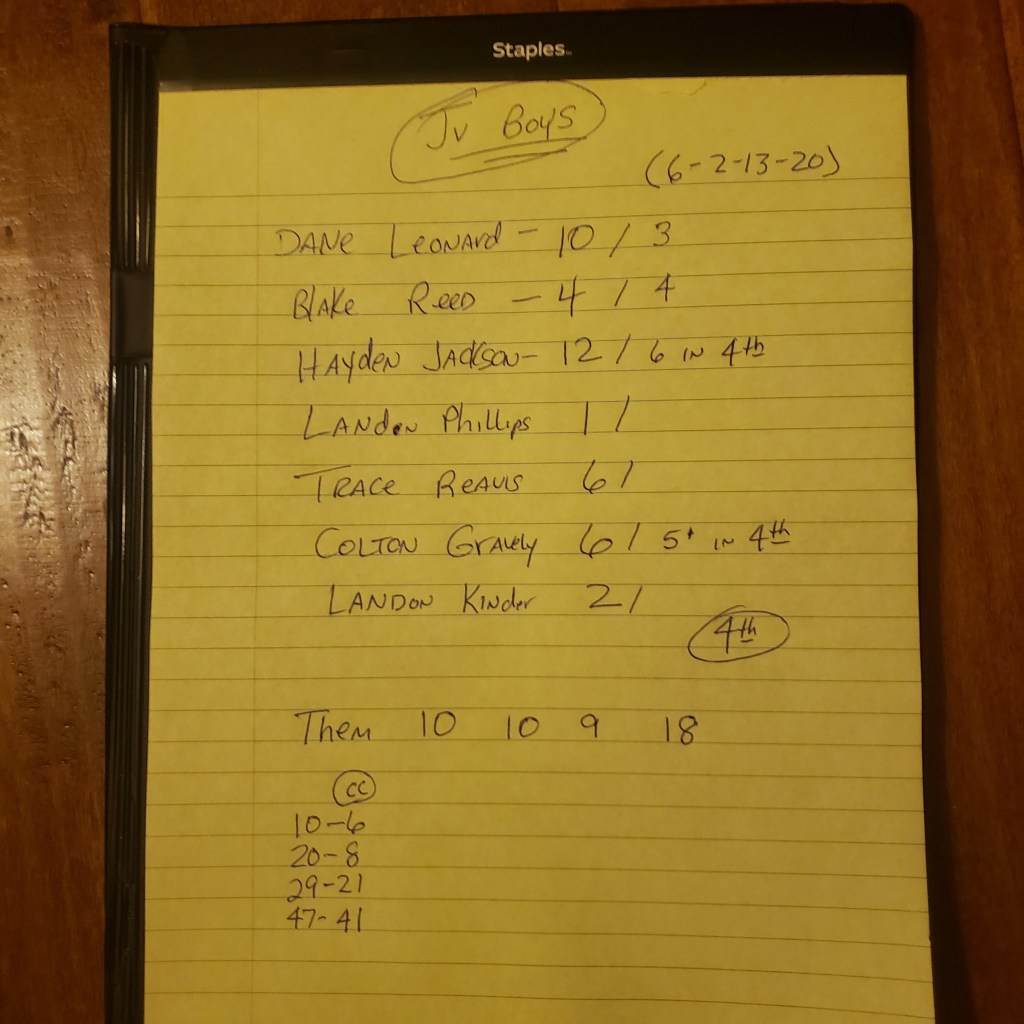 Staples
JV BOYS
(6-2-13-20)
DANE LEONARD - 10 / 3
BLAKE REED - 4 / 4
HAYDEN JACKSON - 12 / 6 IN 4th
LANDON Phillips 1 /
TRACE REAVIS 6 /
COLTON GRAVELY 6 / 5+ IN 4th
LANDON KINDER 2 /
4th
Them 10 10 9 18
CC
10-6
20-8
29-21
47-41